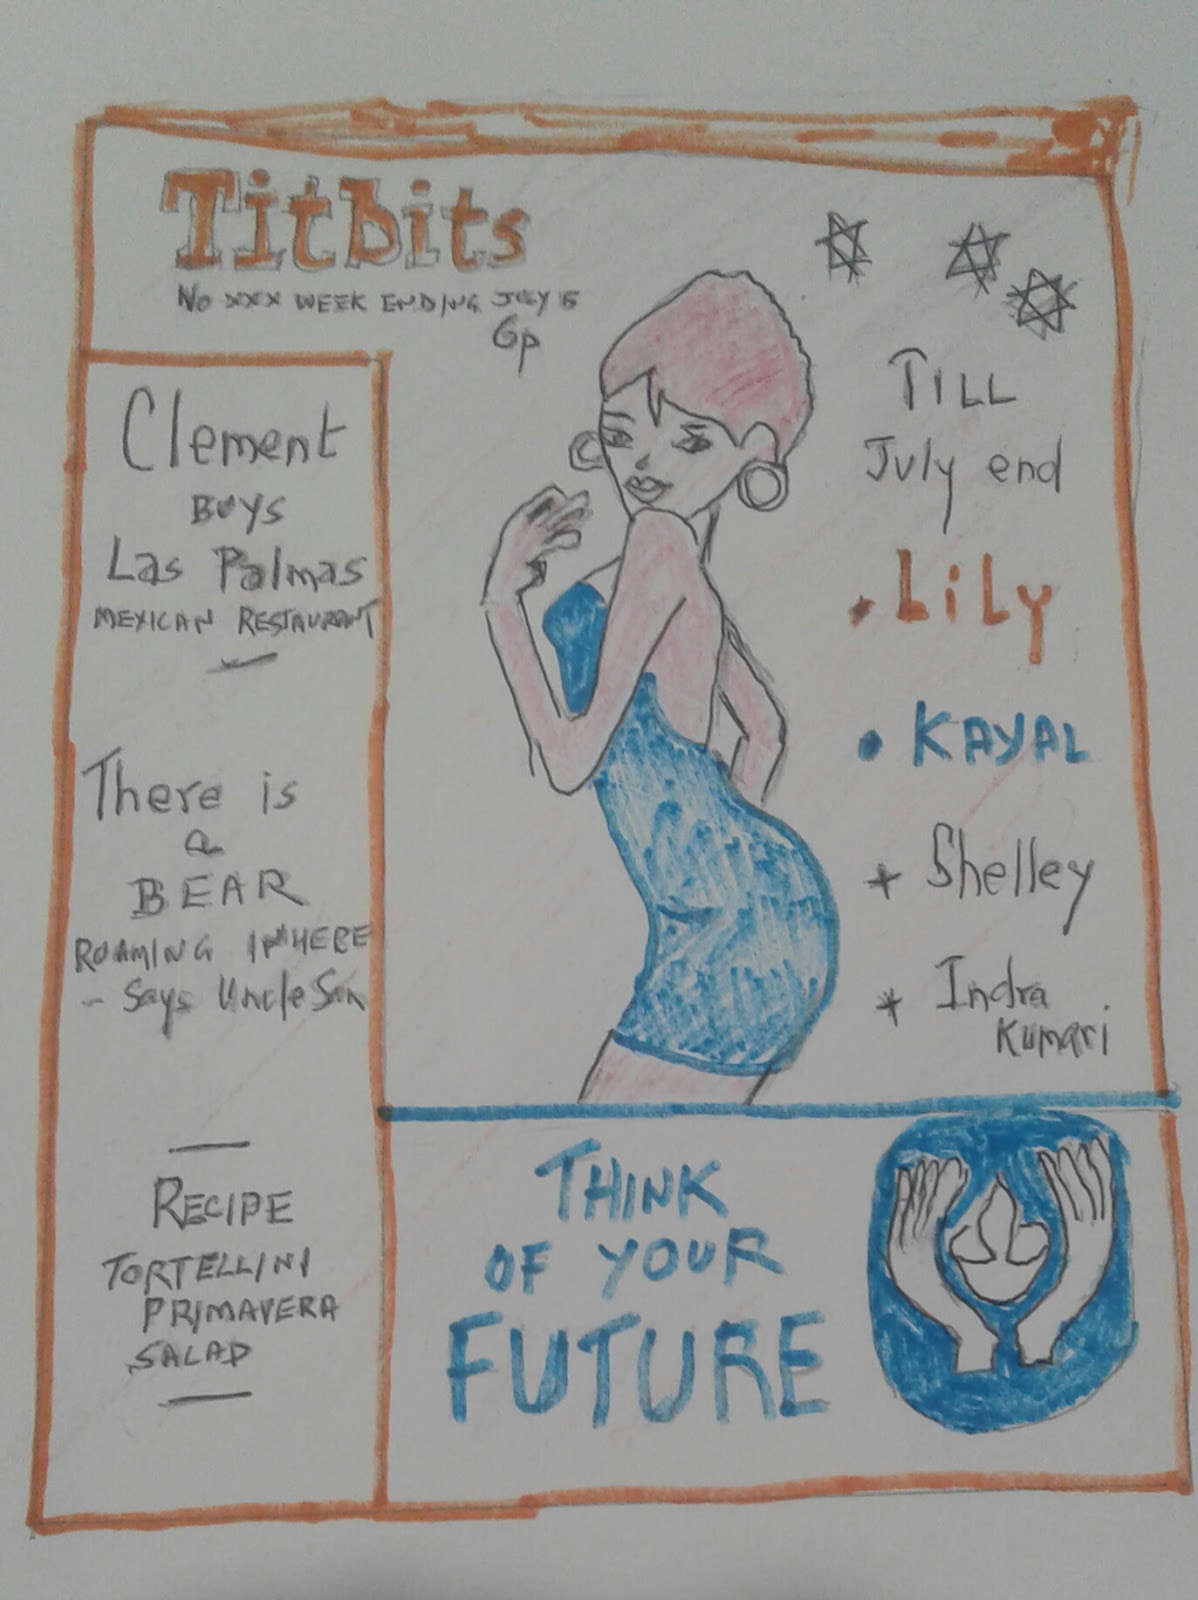 Titbits
No xxx WEEK ENDING JULY 15
6p
Clement
BUYS
Las Palmas
MEXICAN RESTAURANT
There is
a
BEAR
ROAMING
- Says Uncle Sam
RECIPE
TORTELLINI
PRIMAVERA
SALAD
TILL
July end
• LiLy
• KAYAL
+ Shelley
+ Indra
Kumari
THINK
OF YOUR
FUTURE